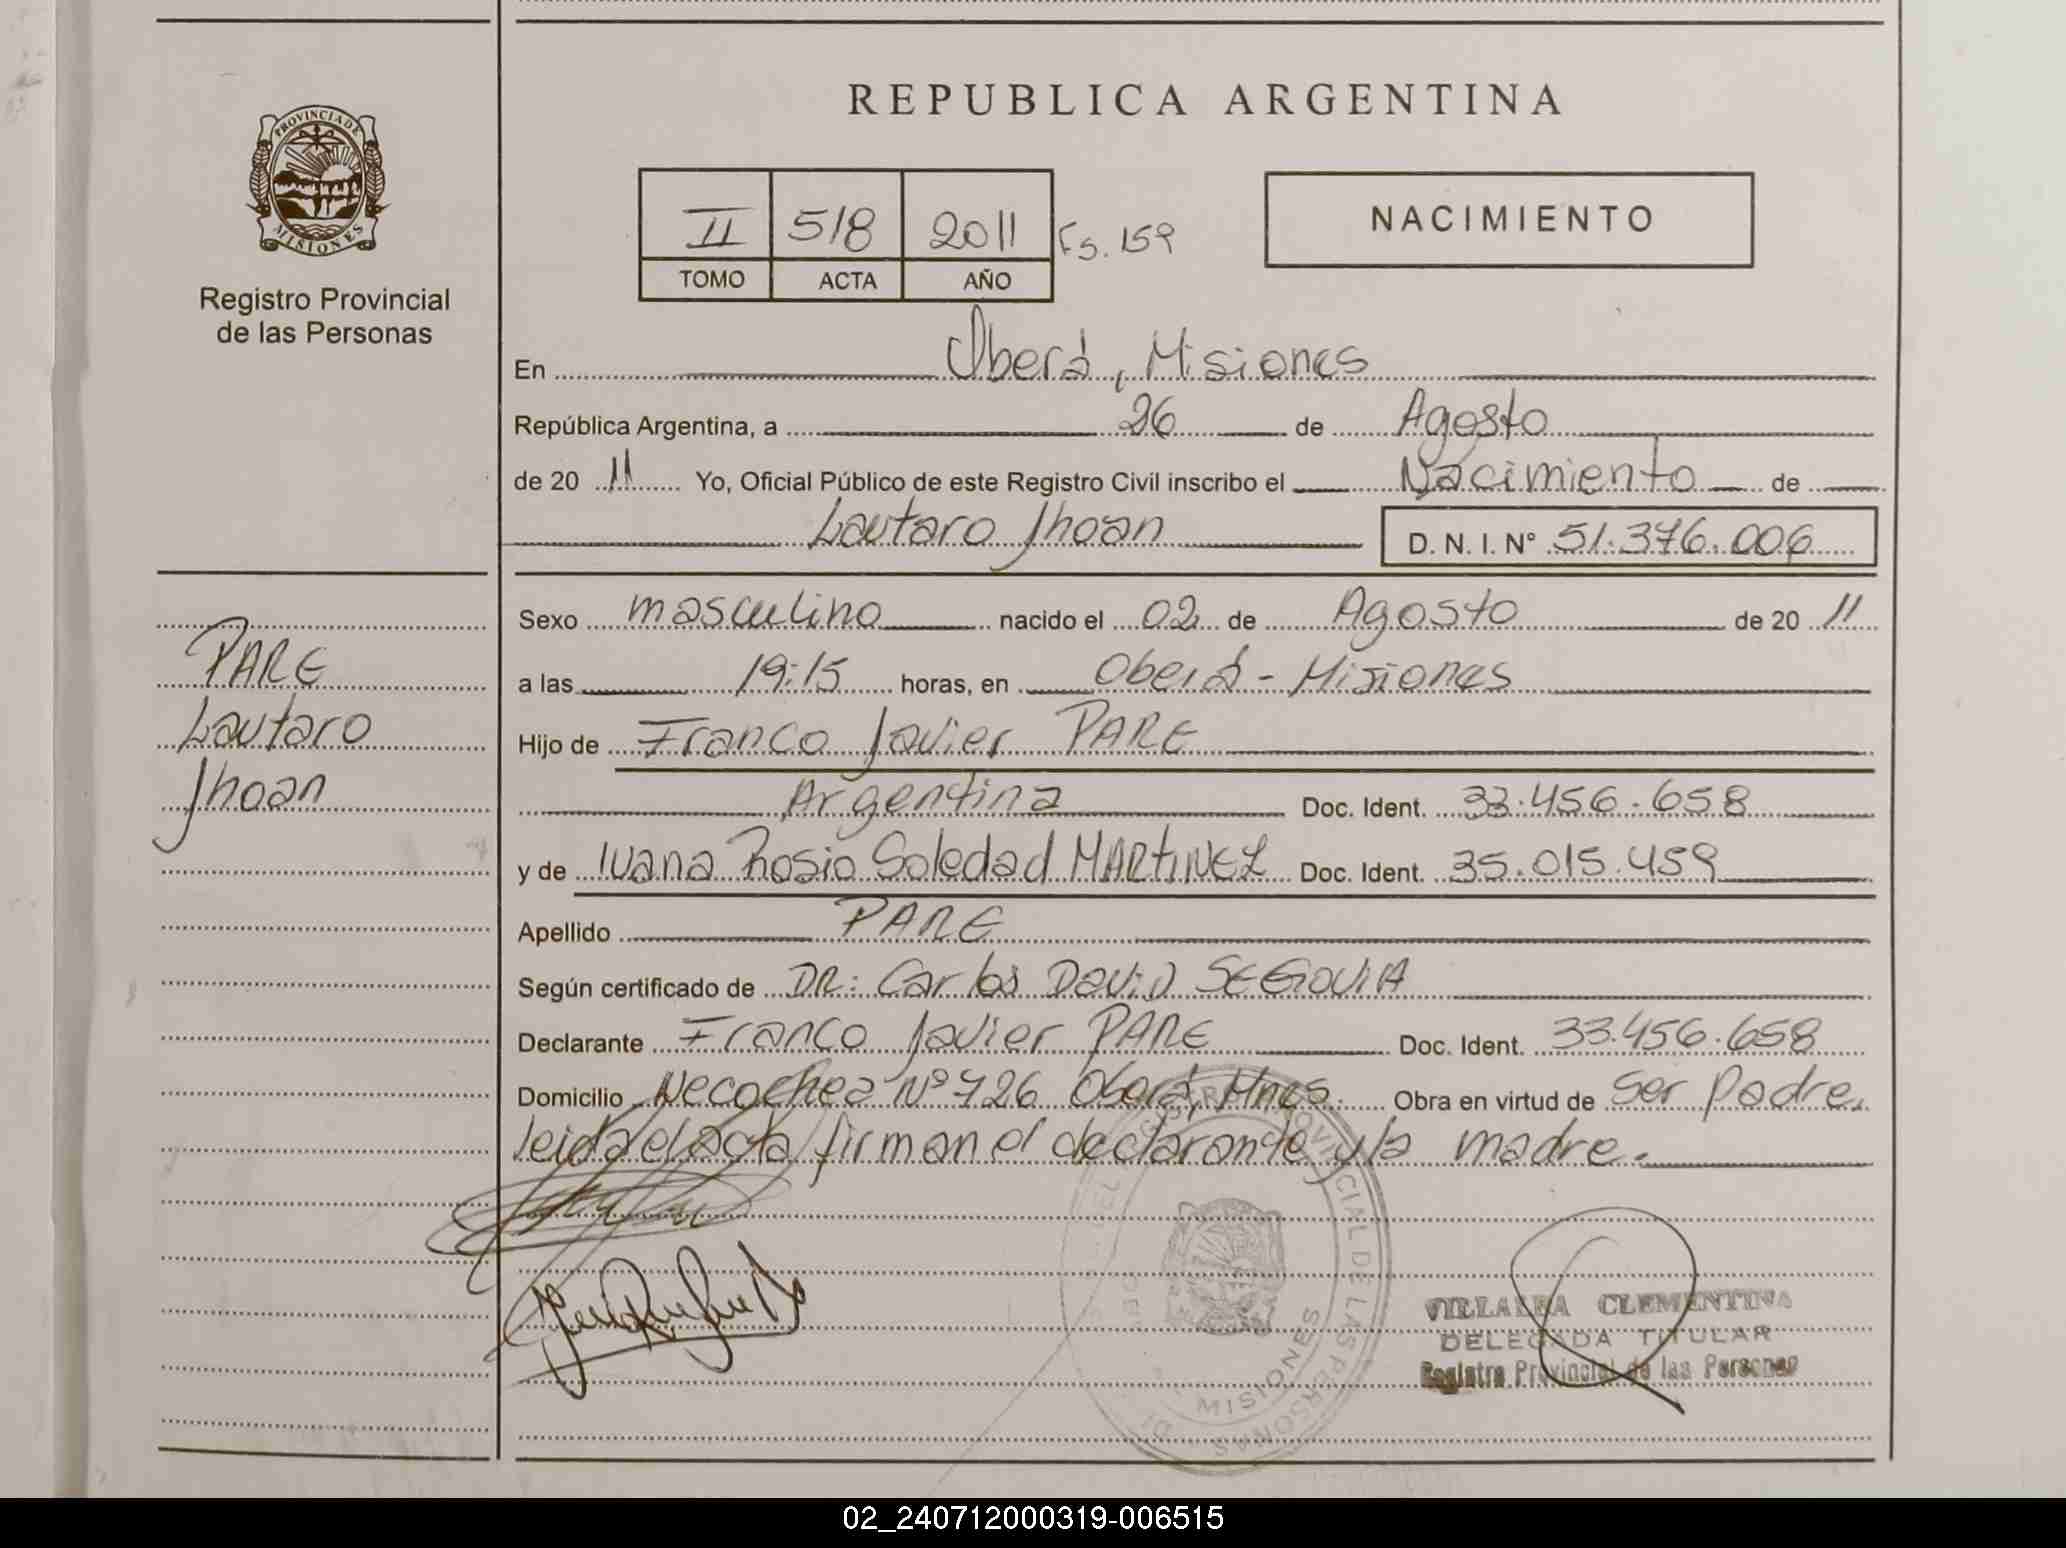 REPUBLICA ARGENTINA
PROVINCIA DE MISIONES
Registro Provincial
de las Personas
II 518 2011 Fs. 159
TOMO ACTA AÑO
NACIMIENTO
En Oberá, Misiones
República Argentina, a 26 de Agosto
de 20 11 Yo, Oficial Público de este Registro Civil inscribo el Nacimiento de
Lautaro Jhoan D. N. I. N° 51.376.006
PARE
Lautaro
Jhoan
Sexo masculino nacido el 02 de Agosto de 20 11
a las 19:15 horas, en Oberá - Misiones
Hijo de Franco Javier PARE
Argentina Doc. Ident. 33.456.658
y de Ivana Rosio Soledad MARTINEZ Doc. Ident. 35.015.459
Apellido PARE
Según certificado de DR: Carlos David SEGOVIA
Declarante Franco Javier PARE Doc. Ident. 33.456.658
Domicilio Necochea N° 726 Oberá, Mnes. Obra en virtud de Ser Padre.
leida el acta firman el declarante y la madre.
REGISTRO PROVINCIAL DE LAS PERSONAS
MISIONES
VILLALBA CLEMENTINA
DELEGADA TITULAR
Registro Provincial de las Personas
02_240712000319-006515